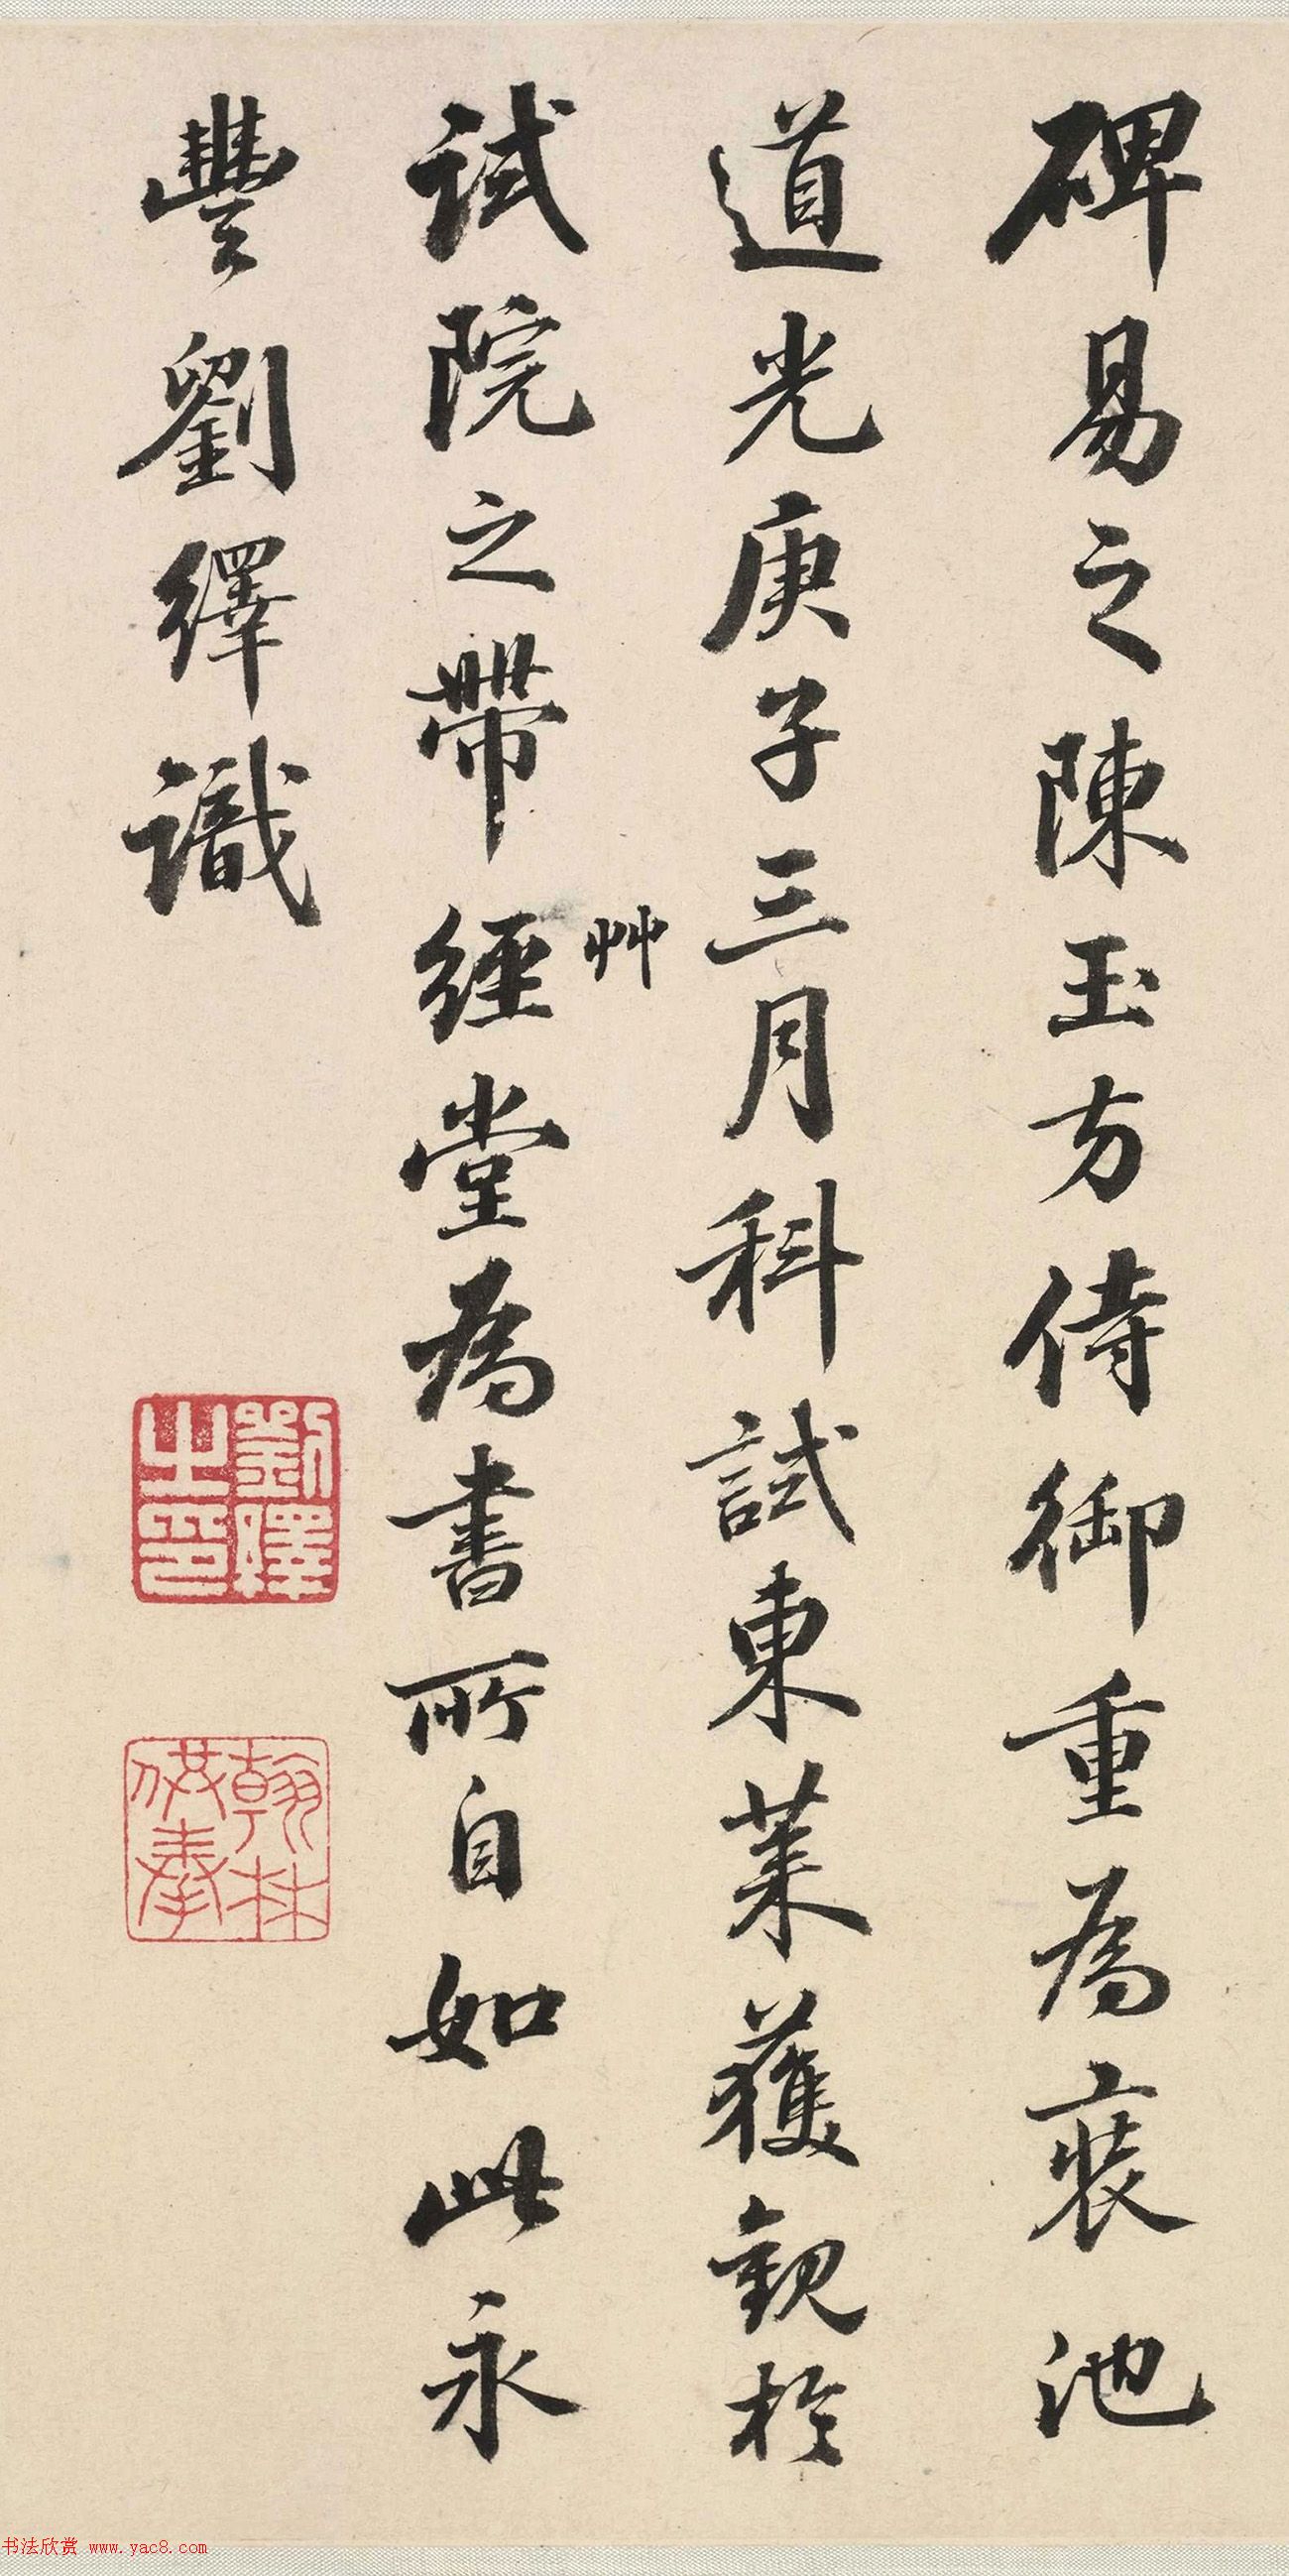 碑易之陳玉方侍御重為裝池
道光庚子三月科試東萊獲觀於
試院之帶經堂為書所自如此永
艸
豐劉繹識
劉繹之印
翰林供奉
书法欣赏 www.yac8.com